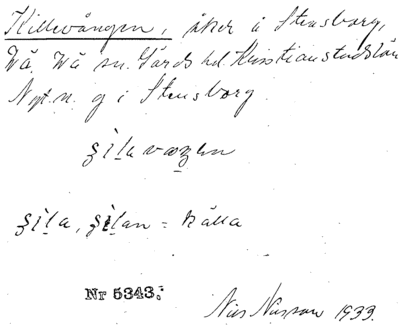 Killevången, åker å Stensborg,
Vä, Vä sn. Gärds hd. Kristianstads län
Nyt. n. g i Stensborg
ʒìla, ʒìlan = källa
Nr 5343.
Nils Nilsson 1933.